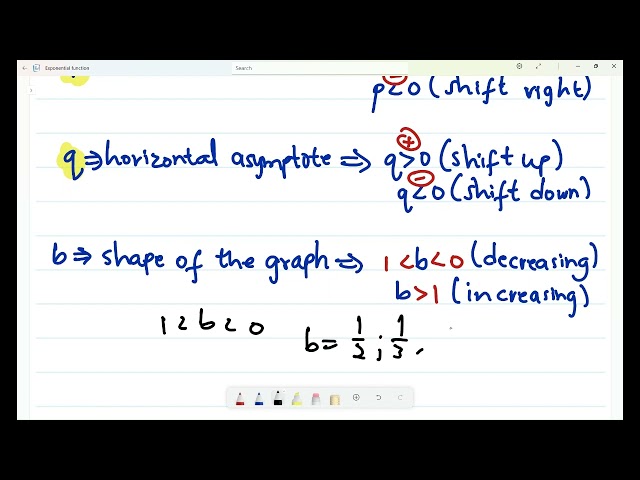 Exponential function
Search
p<0 (shift right)
q ⇒ horizontal asymptote ⇒ q>0 (shift up)
q<0 (shift down)
b ⇒ shape of the graph ⇒ 1<b<0 (decreasing)
b>1 (increasing)
1<b<0 b= 1/2 ; 1/3 ,